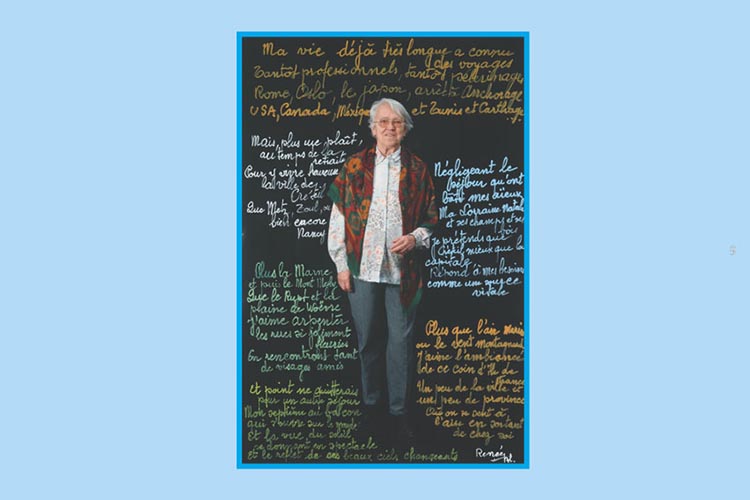 Ma vie déjà très longue a connu
des voyages
Tantôt professionnels, tantôt pèlerinages
Rome, Oslo, le japon, arrêts Anchorage
USA, Canada, Mexique et Tunis et Carthage
Mais, plus me plaît,
au temps de la
retraite
Pour y vivre heureuse
la ville de
Créteil
Que Metz, Toul, ou
bien encore
Nancy
Négligeant le
séjour qu'ont
bâti mes aïeux
Ma Lorraine Natale
et ses champs et ses
bois
je prétends que
Créteil mieux que la
capitale
Répond à mes besoins
comme une source
vitale
Plus la Marne
et puis le Mont Mesly
Que le Rupt et la
plaine de Woëvre
J'aime arpenter
les rues si joliment
fleuries
En rencontrant tant
de visages amis
Plus que l'air marin
ou le vent montagnard
J'aime l'ambiance
de ce coin d'Île de
France
Un peu de la ville et
un peu de province
Où on se sent à
l'aise en sortant
de chez soi
Et point ne quitterais
pour un autre séjour
Mon septième au balcon
qui s'ouvre sur le monde
Et la vue du soleil
se donnant en spectacle
et le reflet de ses beaux ciels changeants
Renée